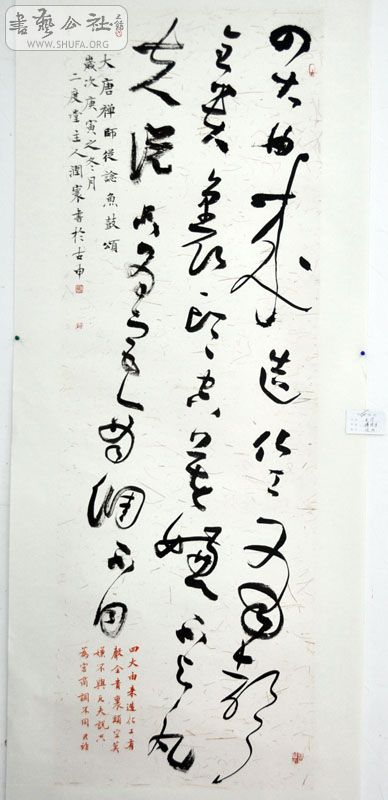 書藝公社
WWW.SHUFA.ORG
四大由来造化工有声
全貴裏頭空莫嫌不与凡
夫说只为宫商调不同
大唐禅師從諗魚鼓頌
歲次庚寅之冬月
二度堂主人潤書於古申
四大由来造化工有
聲全貴裏頭空莫
嫌不與凡夫説只
為宮商調不同